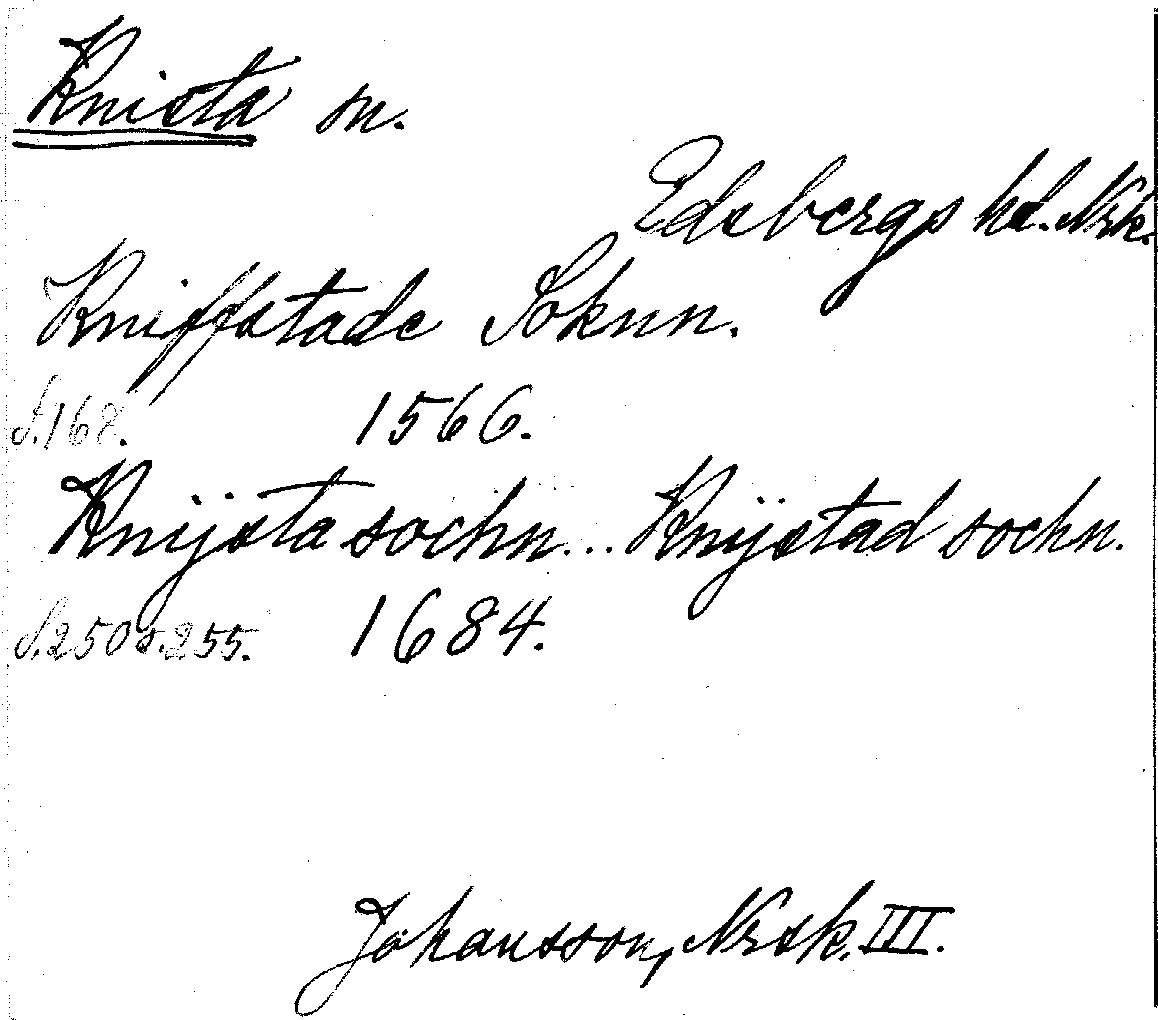 Knista sn.
Edsbergs hd. Nrk.
Kniffstade Soknn.
S.168. 1566.
Knijsta sochn... Knijstad sochn.
S.250 o. 255. 1684.
Johansson, Nrsk. III.